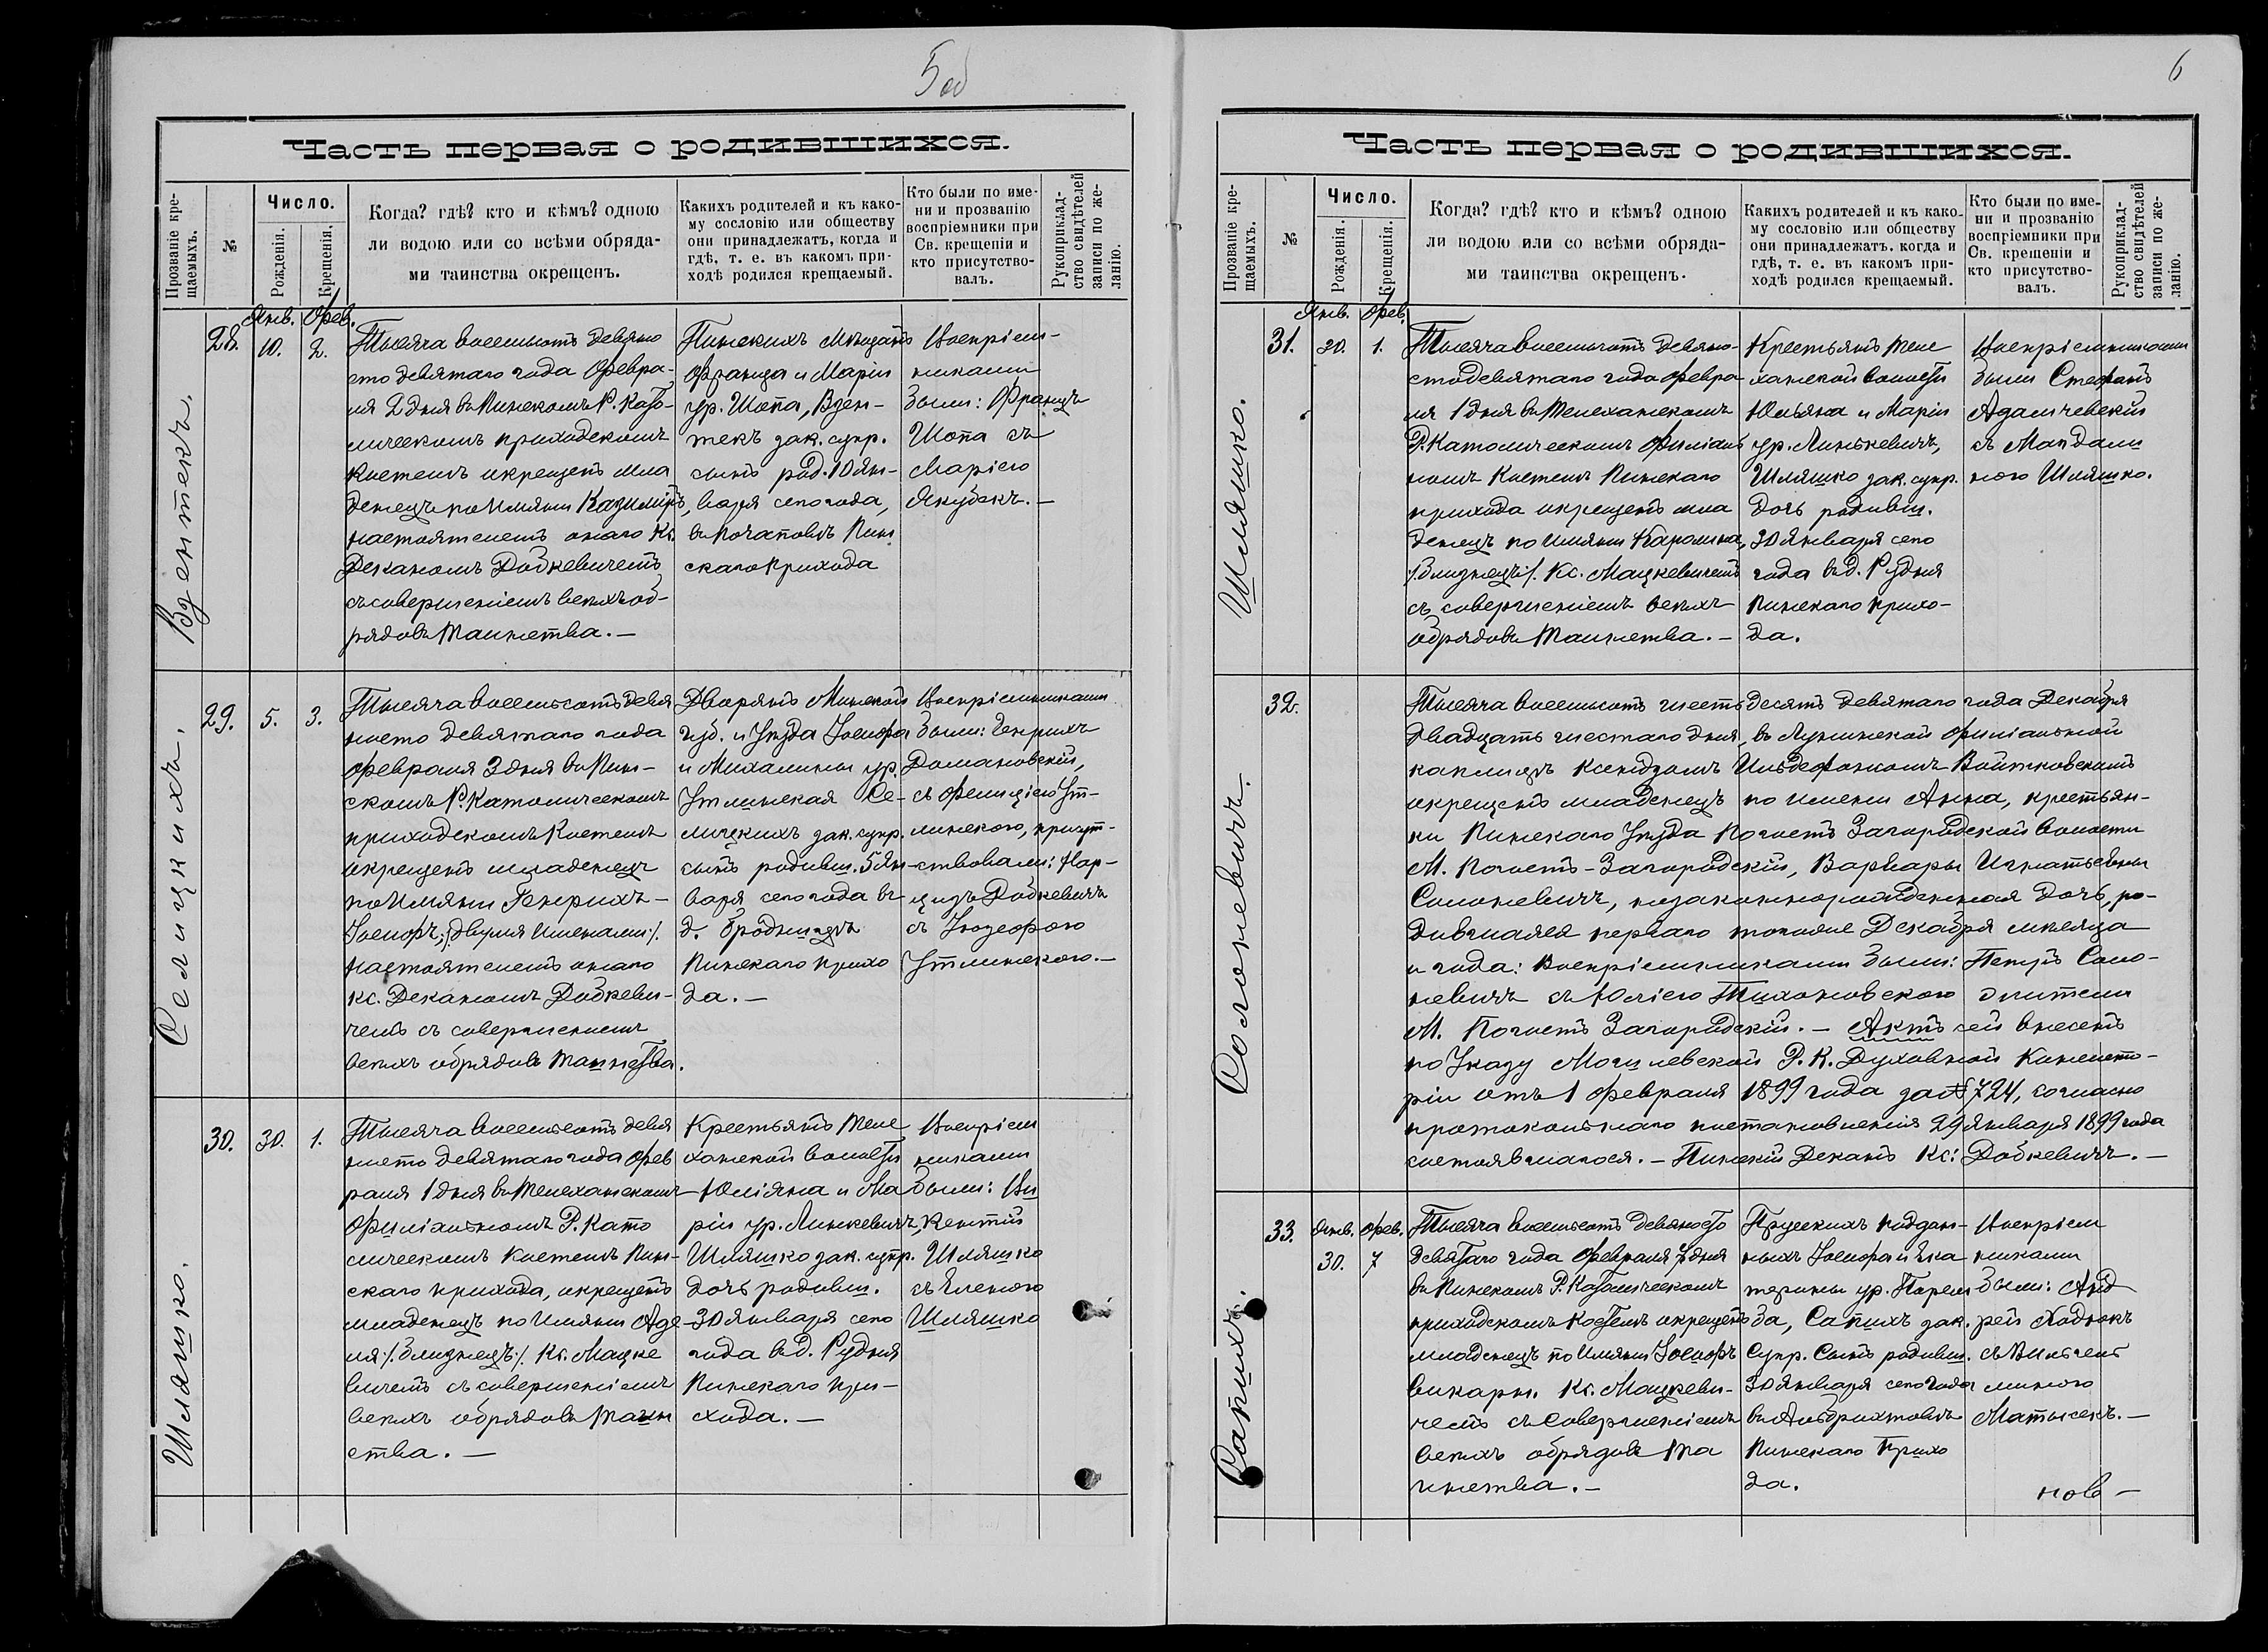 5 об
Часть первая о родившихся.
Прозваніе кре-
щаемыхъ.
№
Число.
Рожденія.
Крещенія.
Когда? гдѣ? кто и кѣмъ? одною
ли водою или со всѣми обряда-
ми таинства окрещенъ.
Какихъ родителей и къ како-
му сословію или обществу
они принадлежатъ, когда и
гдѣ, т. е. въ какомъ при-
ходѣ родился крещаемый.
Кто были по име-
ни и прозванію
воспріемники при
Св. крещеніи и
кто присутство-
валъ.
Рукоприклад-
ство свидѣтелей
записи по же-
ланію.
Вдентекъ.
28.
Янв. Фев.
10. 2.
Тысяча восемьсотъ девяно
сто девятаго года Февра-
ля 2 дня въ Пинскомъ Р. Като-
лическомъ приходскомъ
Костелѣ окрещенъ мла
денецъ по имяни Казиміръ,
настоятелемъ онаго Кс.
Деканомъ Добкевичемъ
съ совершеніемъ всѣхъ об-
рядовъ Таинства. —
Пинскихъ Мѣщанъ
Франца и Маріи
ур. Шопа, Вден-
текъ зак. супр.
сынъ род. 10 Ян-
варя сего года,
въ Почаповѣ Пин
скаго прихода
Воспріем-
никами
были: Францъ
Шопа съ
Маріею
Якубекъ. —
Селицкихъ.
29.
5. 3.
Тысяча восемьсотъ девя
носто девятаго года
Февраля 3 дня въ Пин-
скомъ Р. Католическомъ
приходскомъ Костелѣ
окрещенъ младенецъ
по имяни Генрихъ —
Іосифъ; /двумя именами/.
настоятелемъ онаго
кс. Деканомъ Добкеви-
чемъ съ совершеніемъ
всѣхъ обрядовъ таинства.
Дворянъ Минской
губ. и Уѣзда Іосифа
и Михалины ур.
Утлинская Се-
лицкихъ зак. супр.
сынъ родивш. 5 Ян-
варя сего года въ
д. Бродницѣ
Пинскаго прихо
да. —
Воспріемниками
были: Генрихъ
Домановскій,
съ Фелиціею Ут-
линскою, присут-
ствовали: Нар-
цизъ Добкевичъ
съ Іозефою
Утлинскою. —
Шляшко.
30.
30. 1.
Тысяча восемьсотъ девя
носто девятаго года Фев
раля 1 дня въ Телеханскомъ
Филіальномъ Р. Като
лическомъ костелѣ Пин-
скаго прихода, окрещенъ
младенецъ по имяни Аде
ля /: близнецъ :/. Кс. Мацке
вичемъ съ совершеніемъ
всѣхъ обрядовъ таин
ства. —
Крестьянъ Теле
ханской волости
Юліяна и Ма
ріи ур. Линкевичъ,
Шляшко зак. супр.
дочь родивш.
30 Января сего
года въ д. Рудня
Пинскаго при-
хода. —
Воспріем
никами
были: Ви
кентій
Шляшко
съ Еленою
Шляшко
6
Часть первая о родившихся.
Прозваніе кре-
щаемыхъ.
№
Число.
Рожденія.
Крещенія.
Когда? гдѣ? кто и кѣмъ? одною
ли водою или со всѣми обряда-
ми таинства окрещенъ.
Какихъ родителей и къ како-
му сословію или обществу
они принадлежатъ. когда и
гдѣ, т. е. въ какомъ при-
ходѣ родился крещаемый.
Кто были по име-
ни и прозванію
воспріемники при
Св. крещеніи и
кто присутство-
валъ.
Рукоприклад-
ство свидѣтелей
записи по же-
ланію.
Шляшко.
31.
Янв. Фев.
30. 1.
Тысяча восемьсотъ девяно-
сто девятаго года Февра
ля 1 дня въ Телеханскомъ
Р. Католическомъ Филіаль
номъ Костелѣ Пинскаго
прихода окрещенъ мла
денецъ по имяни Каролина,
/: Близнецъ :/. Кс. Мацкевичемъ
съ совершеніемъ всѣхъ
обрядовъ Таинства. —
Крестьянъ Теле
ханской волости
Юльяна и Маріи
ур. Линькевичъ,
Шляшко зак. супр.
Дочь родивш.
30 Января сего
года въ д. Рудня
Пинскаго прихо-
да.
Воспріемниками
были Стефанъ
Адамчевскій
съ Магдали
ною Шляшко.
Солоневичъ.
32.
Тысяча восемьсотъ шестьдесятъ девятаго года Декабря
двадцать шестаго дня, въ Лунинской Филіальной
каплицѣ Ксендзомъ Ильдефонсомъ Войтковскимъ
окрещенъ младенецъ по имени Анна, крестьян-
ки Пинскаго Уѣзда Погостъ Загородской волости
М. Погостъ-Загородскій, Варвары Игнатьевны
Солоневичъ, незаконнорожденная дочь, ро-
дившаяся перваго тогоже Декабря мѣсяца
и года: Воспріемниками были: Петръ Соло-
невичъ съ Юліею Тихановскою жители
М. Погостъ Загородскій. — Актъ сей внесенъ
по Указу Могилевской Р. К. Духовной Консисто-
ріи отъ 1 Февраля 1899 года за № 724, согласно
протокольнаго постановленія 29 Января 1899 года
состоявшагося. — Пинскій Деканъ Кс: Добкевичъ. —
Сапихъ.
33.
Янв. Фев.
30. 7
Тысяча восемьсотъ девяносто
девятаго года Февраля 7 дня
въ Пинскомъ Р. Католическомъ
приходскомъ Костелѣ окрещенъ
младенецъ по имяни Іосифъ
викарн. Кс. Мацкеви-
чемъ съ совершеніемъ
всѣхъ обрядовъ та
инства. —
Прускихъ поддан-
ныхъ Іосифа и Ека
терины ур. Порем
ба, Сапихъ зак.
Супр. Сынъ родивш.
30 Января сего года
въ Альбрихтовѣ
Пинскаго Прихо
да.
Воспріем
никами
были: Анд
рей Ходюкъ
съ Вильгель
миною
Матысекъ. —
нов —